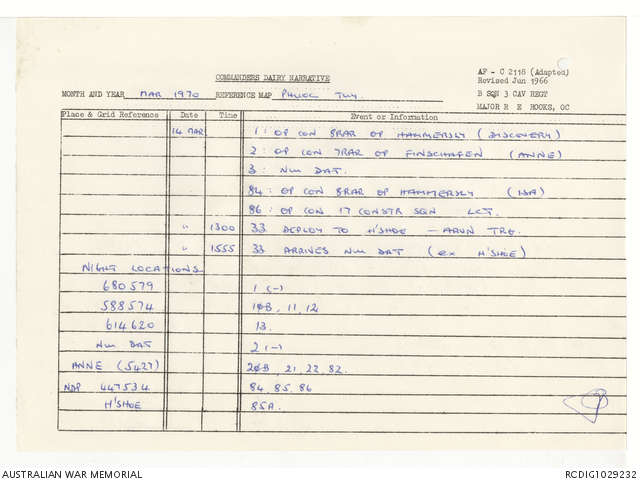 COMMANDERS DAIRY NARRATIVE
AF - C 2118 (Adapted)
Revised Jun 1966
MONTH AND YEAR MAR 1970 REFERENCE MAP PHUOC TUY
B SQN 3 CAV REGT
MAJOR R E ROOKS, OC
Place & Grid Reference Date Time Event or Information
14 MAR 1 : OP CON 8RAR OP HAMMERSLY (DISCOVERY)
2 : OP CON 7RAR OP FINSCHAFEN (ANNE)
3 : NUI DAT.
84 : OP CON 8RAR OP HAMMERSLY (ISA)
86 : OP CON 17 CONSTR SQN LCT.
" 1300 33 DEPLOY TO H'SHOE - ARVN TRG.
" 1555 33 ARRIVES NUI DAT (ex H'SHOE)
NIGHT LOCATIONS
680579 1 (-)
588574 10B, 11, 12
614620 13.
NUI DAT 2 (-)
ANNE (5427) 20B, 21, 22, 82.
NDP 447534 84, 85, 86
H'SHOE 85A.
AUSTRALIAN WAR MEMORIAL RCDIG1029232